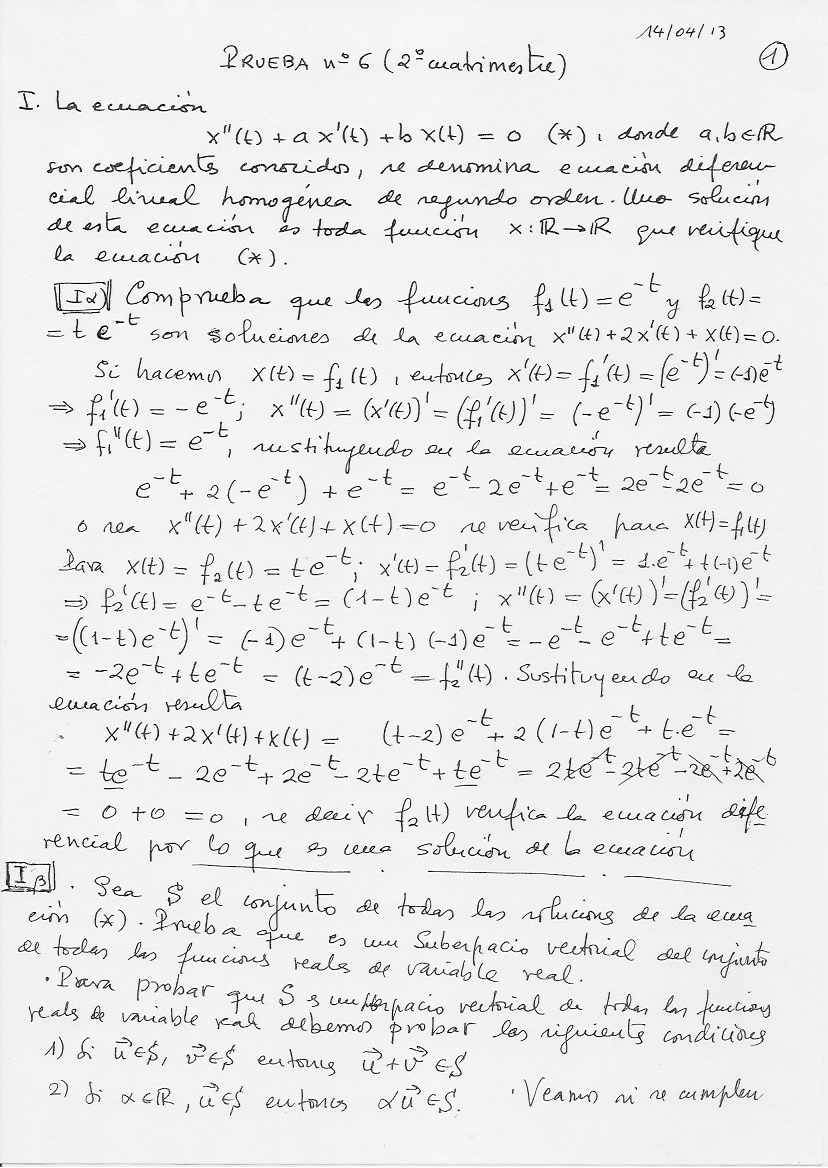 14/04/13
PRUEBA nº 6 (2º cuatrimestre) 1
I. La ecuación
x''(t) + a x'(t) + b x(t) = 0 (*), donde a, b ∈ ℝ
son coeficientes conocidos, se denomina ecuación diferen-
cial lineal homogénea de segundo orden. Una solución
de esta ecuación es toda función x: ℝ → ℝ que verifique
la ecuación (*).
Iα) Comprueba que las funciones f₁(t) = e^{-t} y f₂(t) =
= t e^{-t} son soluciones de la ecuación x''(t) + 2x'(t) + x(t) = 0.
Si hacemos x(t) = f₁(t), entonces x'(t) = f₁'(t) = (e^{-t})' = (-1)e^{-t}
⇒ f₁'(t) = -e^{-t}; x''(t) = (x'(t))' = (f₁'(t))' = (-e^{-t})' = (-1)(-e^{-t})
⇒ f₁''(t) = e^{-t}, sustituyendo en la ecuación resulta
e^{-t} + 2(-e^{-t}) + e^{-t} = e^{-t} - 2e^{-t} + e^{-t} = 2e^{-t} - 2e^{-t} = 0
o sea x''(t) + 2x'(t) + x(t) = 0 se verifica para x(t) = f₁(t)
Para x(t) = f₂(t) = te^{-t}; x'(t) = f₂'(t) = (te^{-t})' = 1·e^{-t} + t(-1)e^{-t}
⇒ f₂'(t) = e^{-t} - te^{-t} = (1-t)e^{-t}; x''(t) = (x'(t))' = (f₂'(t))' =
= ((1-t)e^{-t})' = (-1)e^{-t} + (1-t)(-1)e^{-t} = -e^{-t} - e^{-t} + te^{-t} =
= -2e^{-t} + te^{-t} = (t-2)e^{-t} = f₂''(t). Sustituyendo en la
ecuación resulta
x''(t) + 2x'(t) + x(t) = (t-2)e^{-t} + 2(1-t)e^{-t} + t·e^{-t} =
= te^{-t} - 2e^{-t} + 2e^{-t} - 2te^{-t} + te^{-t} = 2te^{-t} - 2te^{-t} - 2e^{-t} + 2e^{-t}
= 0 + 0 = 0, es decir f₂(t) verifica la ecuación dife
rencial por lo que es una solución de la ecuación
Iβ. Sea S el conjunto de todas las soluciones de la ecua
ción (*). Prueba que es un Subespacio vectorial del conjunto
de todas las funciones reales de variable real.
· Para probar que S es un subespacio vectorial de todas las funciones
reales de variable real debemos probar las siguientes condiciones
1) Si u⃗ ∈ S, v⃗ ∈ S entonces u⃗ + v⃗ ∈ S
2) Si α ∈ ℝ, u⃗ ∈ S entonces αu⃗ ∈ S. · Veamos si se cumplen